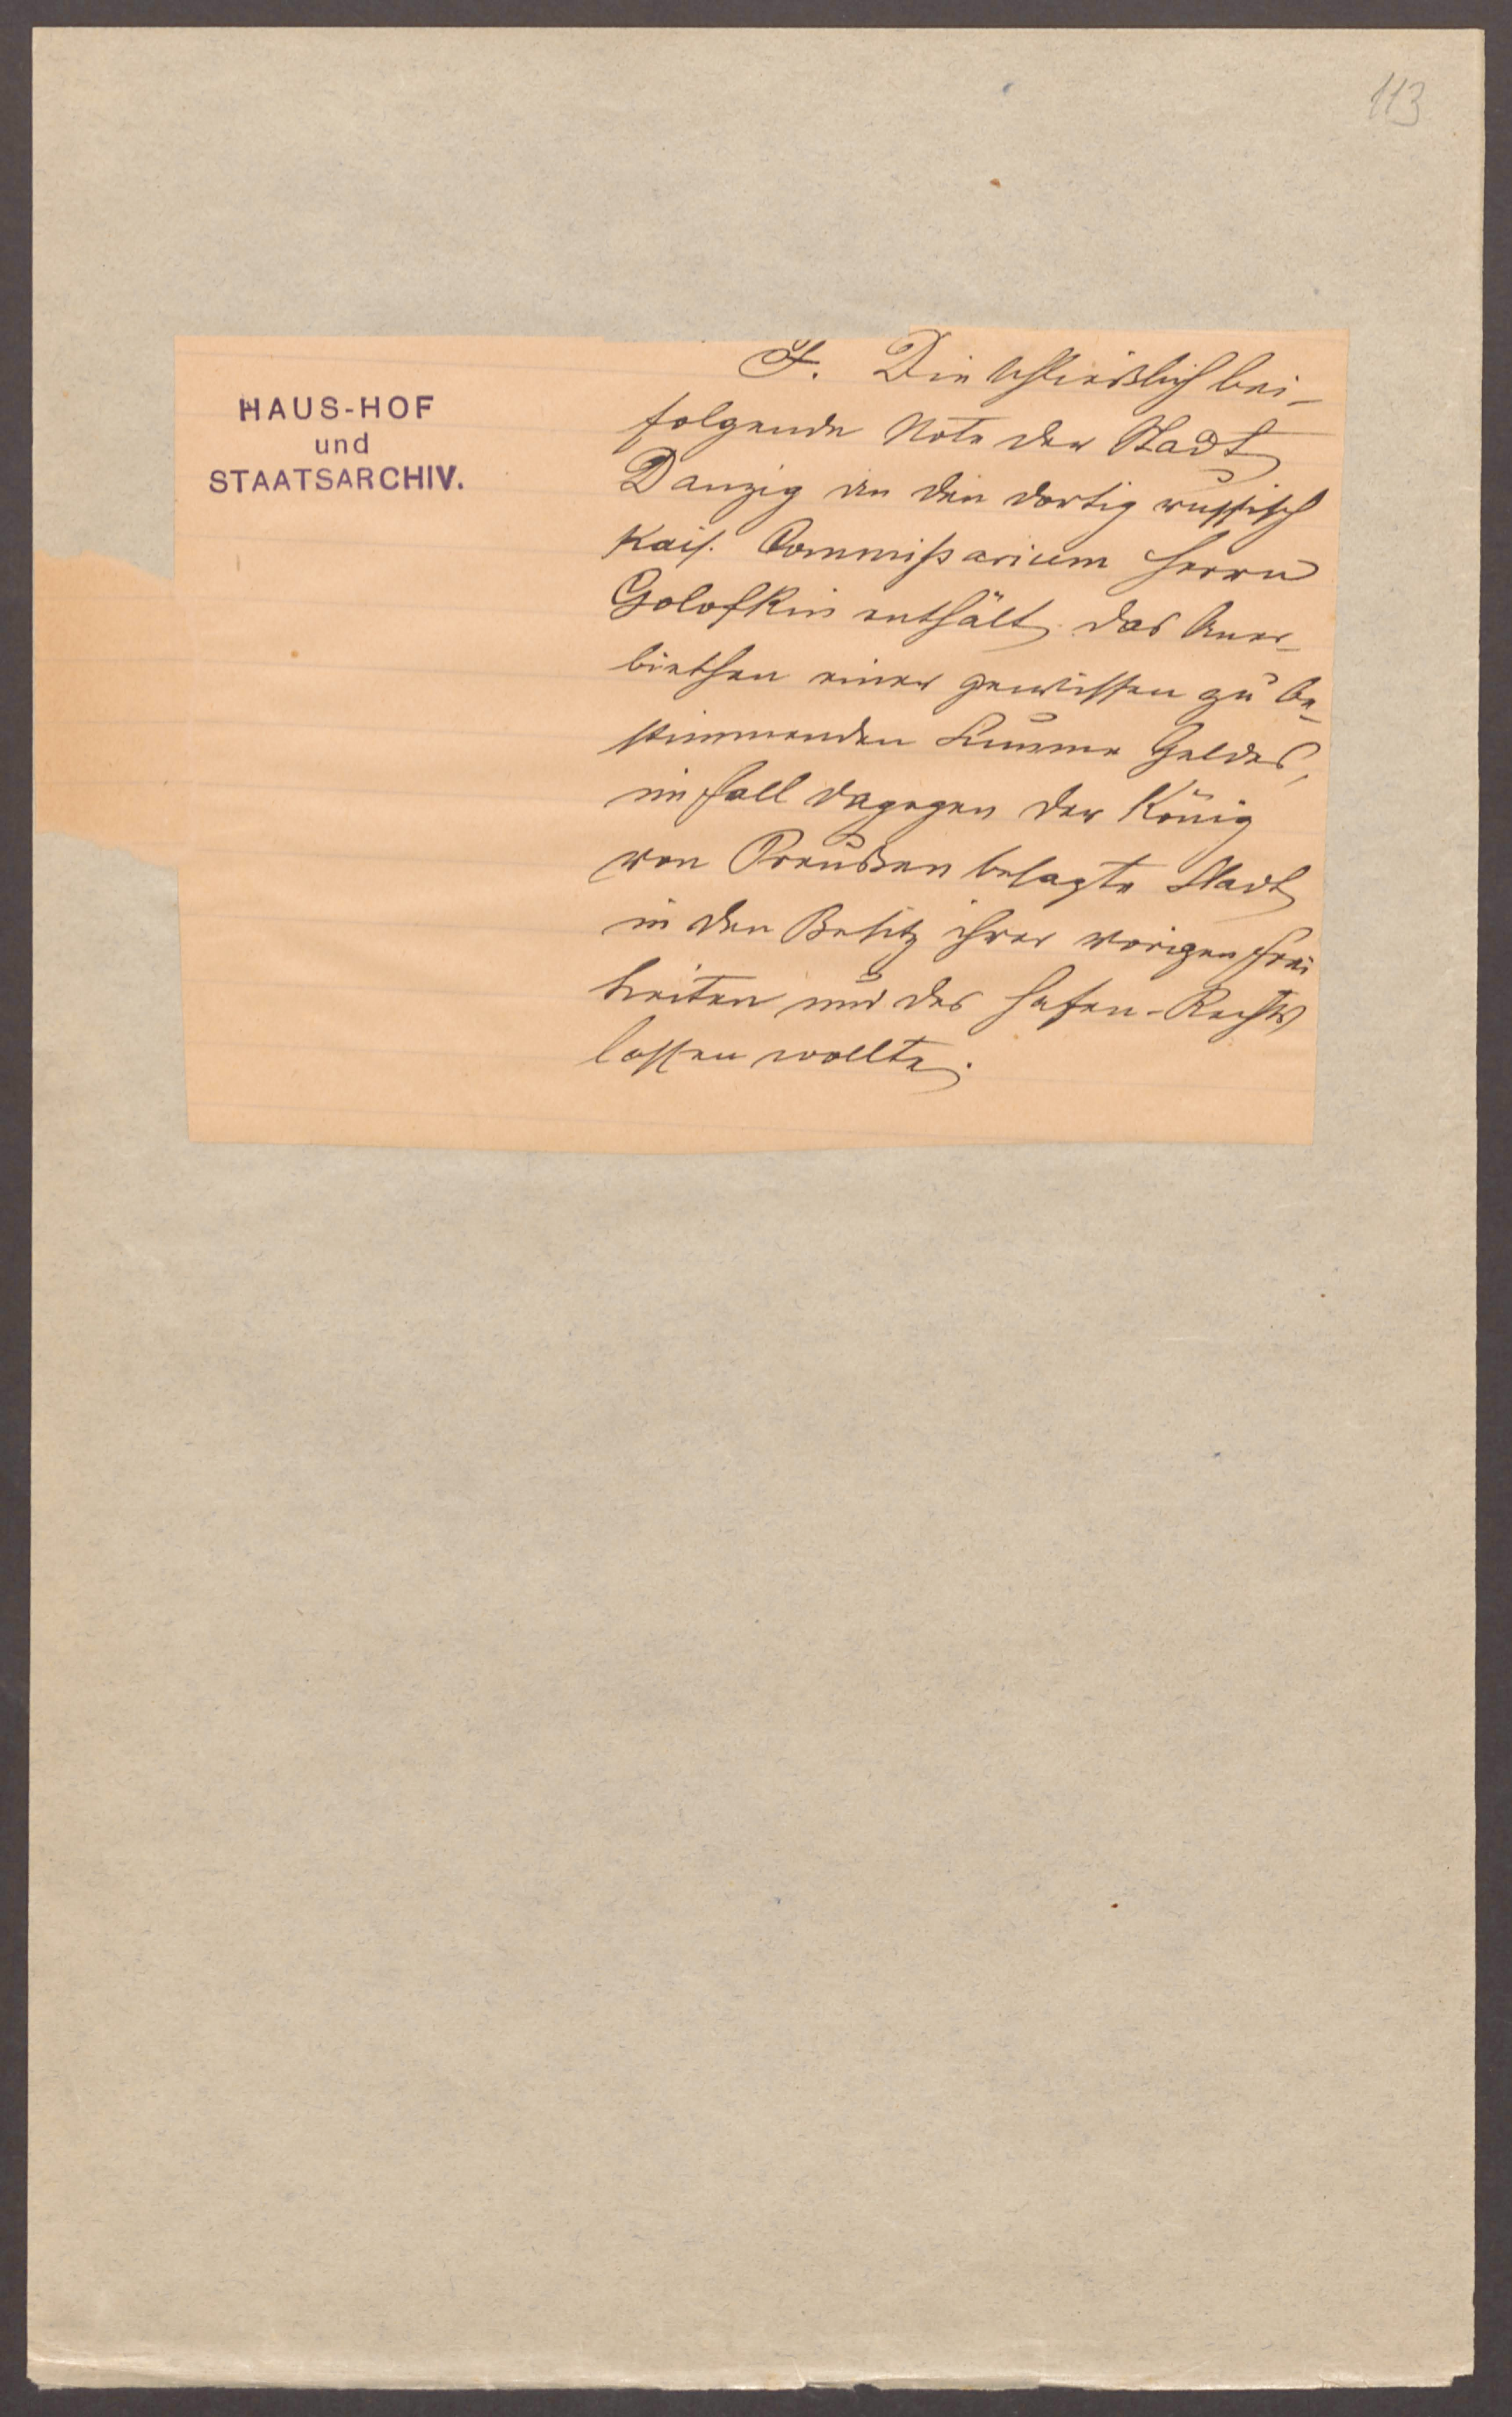 113
HAUS-HOF
und
STAATSARCHIV.
F. Die schließlich bei-
folgende Note der Stadt
Danzig an den dortig russisch
Kais. Commißarium Herrn
Golofkin enthält das Aner-
biethen einer gewissen zu be-
stimmenden Summe Geldes,
im Fall dagegen der König
von Preußen besagte Stadt
in den Besitz ihrer vorigen Frei
heiten und des Hafen-Rechts
lassen wollte.